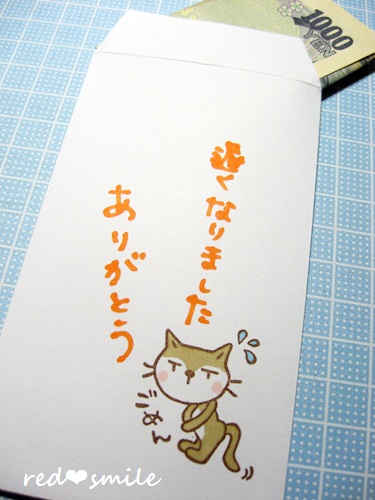 1000
YEN
遅くなりました
ありがとう
ごめん
red♥smile